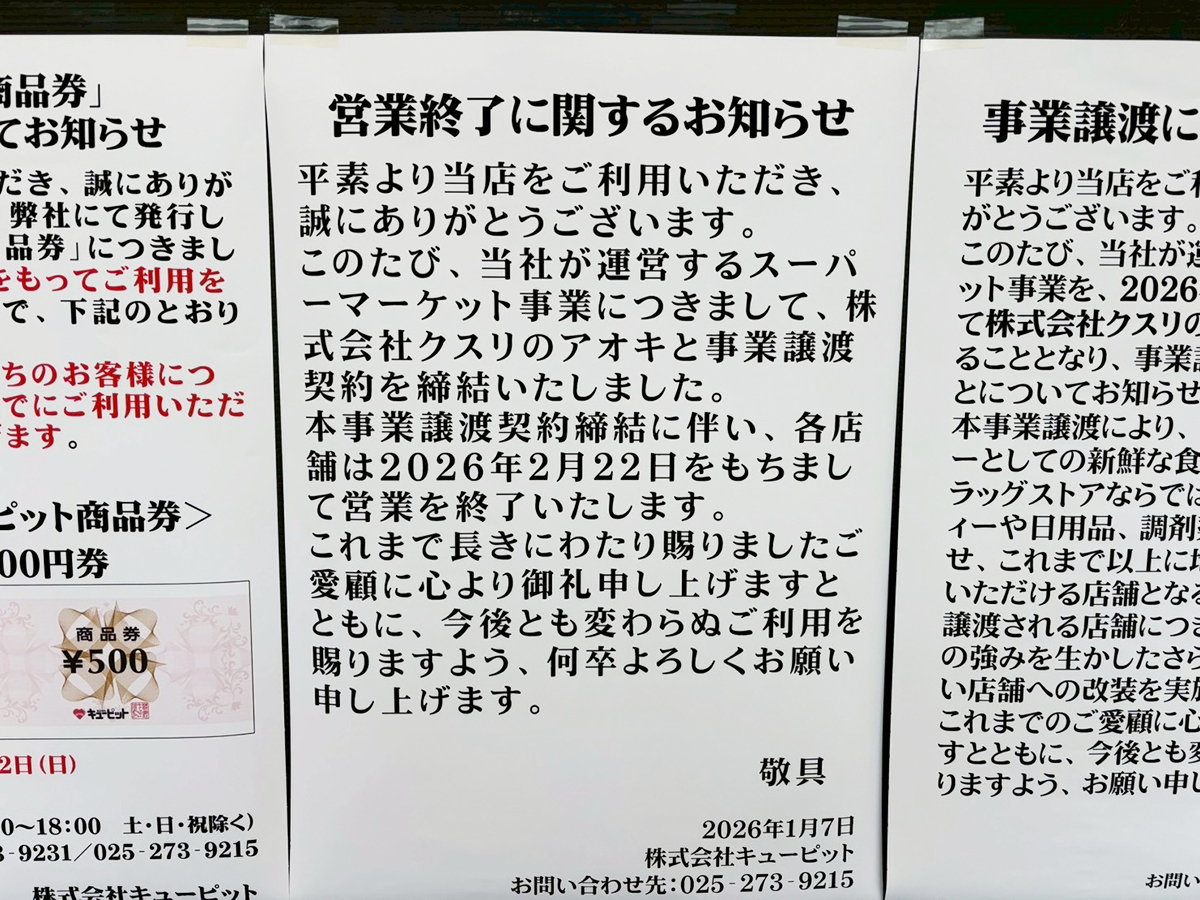 商品券」
てお知らせ
だき、誠にありが
弊社にて発行し
品券」につきまし
をもってご利用を
で、下記のとおり
ちのお客様につ
でにご利用いただ
げます。
ピット商品券＞
00円券
商品券
¥500
キューピット
2日(日)
0～18:00　土・日・祝除く)
3-9231／025-273-9215
株式会社キューピット
営業終了に関するお知らせ
平素より当店をご利用いただき、
誠にありがとうございます。
このたび、当社が運営するスーパ
ーマーケット事業につきまして、株
式会社クスリのアオキと事業譲渡
契約を締結いたしました。
本事業譲渡契約締結に伴い、各店
舗は2026年2月22日をもちまし
て営業を終了いたします。
これまで長きにわたり賜りましたご
愛顧に心より御礼申し上げますと
ともに、今後とも変わらぬご利用を
賜りますよう、何卒よろしくお願い
申し上げます。
敬具
2026年1月7日
株式会社キューピット
お問い合わせ先：025-273-9215
事業譲渡に
平素より当店をご利
がとうございます。
このたび、当社が運
ット事業を、2026
て株式会社クスリの
ることとなり、事業譲
とについてお知らせ
本事業譲渡により、
ーとしての新鮮な食
ラッグストアならでは
ィーや日用品、調剤
せ、これまで以上に
いただける店舗となる
譲渡される店舗につき
の強みを生かしたさら
い店舗への改装を実施
これまでのご愛顧に心
すとともに、今後とも変
りますよう、お願い申し
お問い